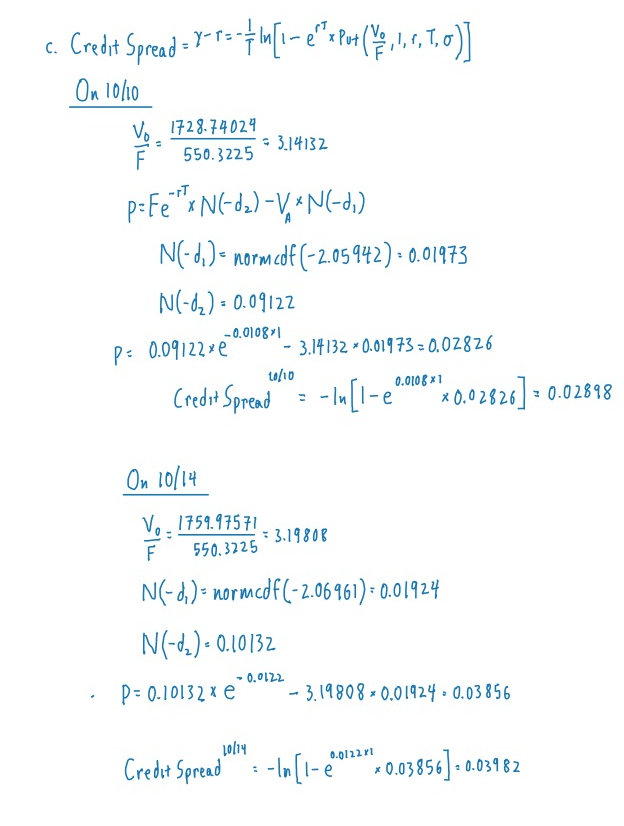 c. Credit Spread = γ-r = -1/T ln[1 - e^rT × Put(V0/F, 1, r, T, σ)]
On 10/10
V0/F = 1728.74024/550.3225 = 3.14132
P = Fe^-rT × N(-d2) - VA × N(-d1)
N(-d1) = normcdf(-2.05942) = 0.01973
N(-d2) = 0.09122
P = 0.09122 × e^-0.0108×1 - 3.14132 × 0.01973 = 0.02826
Credit Spread^10/10 = -ln[1 - e^0.0108×1 × 0.02826] = 0.02898
On 10/14
V0/F = 1759.97571/550.3225 = 3.19808
N(-d1) = normcdf(-2.06961) = 0.01924
N(-d2) = 0.10132
P = 0.10132 × e^-0.0122 - 3.19808 × 0.01924 = 0.03856
Credit Spread^10/14 = -ln[1 - e^0.0122×1 × 0.03856] = 0.03982